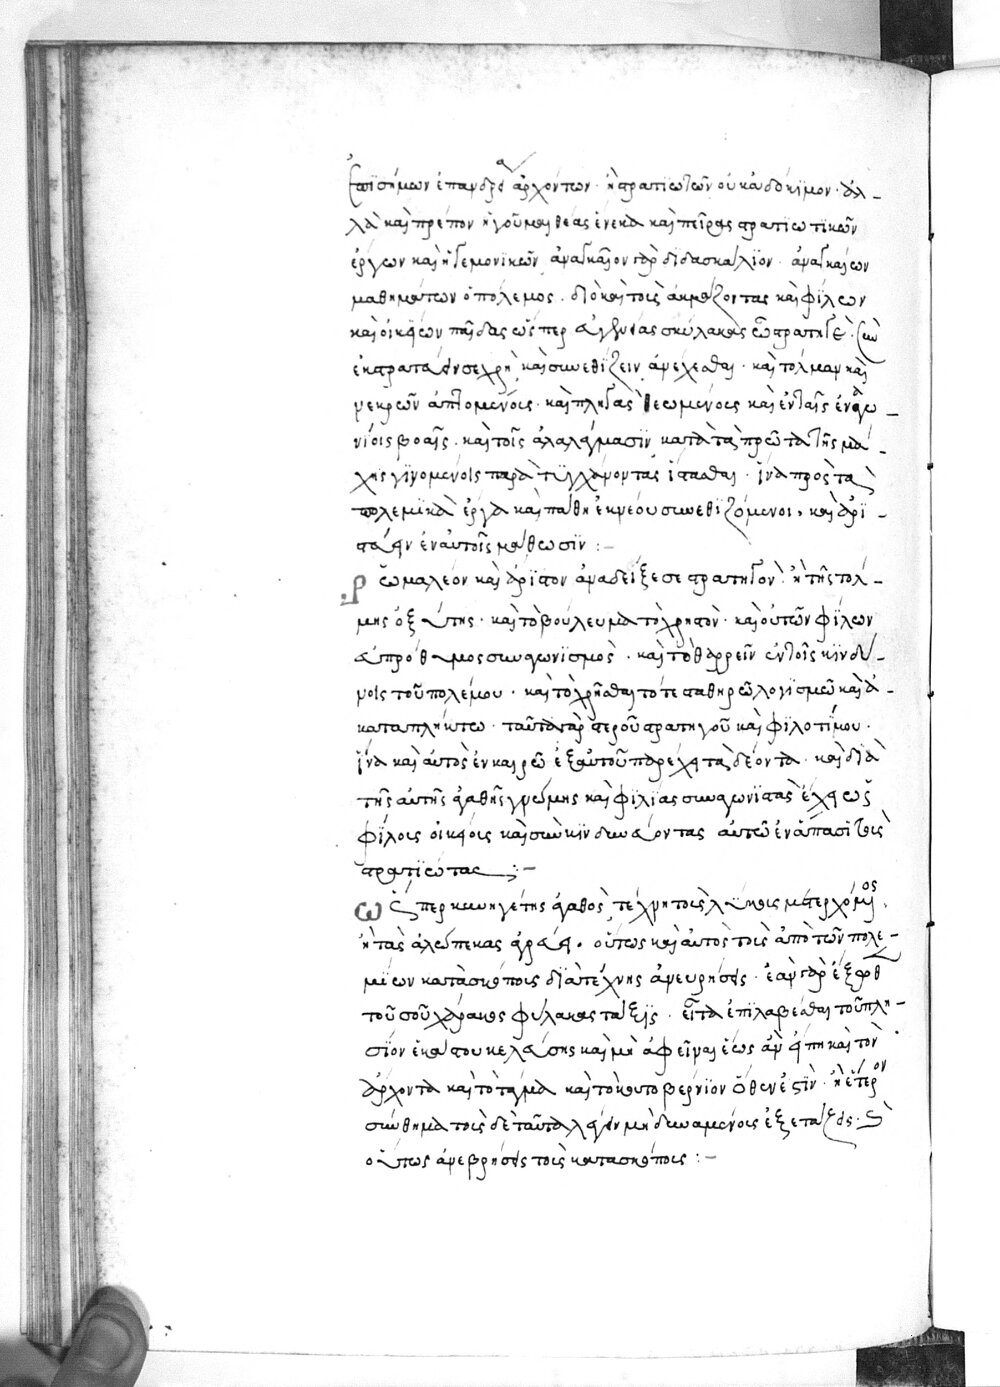 ἐπισήμων ἐπανδρα ἀρχόντων · ἢ στρατιωτῶν οὐκ ἀδόκιμον · ἀλ-
λὰ καὶ πρέπον ἡγοῦμαι θέας ἕνεκα καὶ πείρας στρατιωτικῶν
ἔργων καὶ ἡγεμονικῶν ἀναγκαῖον γὰρ διδασκάλιον · ἀναγκαίων
μαθημάτων ὁ πόλεμος · διὸ καὶ τοὺς ἀκμάζοντας καὶ φίλων
καὶ οἰκείων παῖδας ὥσπερ εὐγενίας σκύλακας ὦ στρατηγέ ·
ἐκστρατεύειν σε χρὴ καὶ συνεθίζειν ἀνέχεσθαι · καὶ τόλμαν καὶ
νεκρῶν ἁπτομένοις · καὶ πληγὰς θεωμένοις καὶ ἐν ταῖς ἐναγω-
νίοις βοαῖς · καὶ τοῖς ἀλαλάγμασιν κατὰ τὰ πρῶτα τῆς μά-
χης γινομένοις παρατυγχάνοντας ἵστασθαι · ἵνα πρὸς τὰ
πολεμικὰ ἔργα καὶ πάθη ἐκ νέου συνεθιζόμενοι, καὶ ἀρι-
στεύειν ἐν αὐτοῖς μάθωσιν :-
Ῥωμαλέον καὶ ἄριστον ἀναδείξει σε στρατηγὸν · ἥ τε τῆς τόλ-
μης ὀξύτης · καὶ τὸ βούλευμα τὸ χρηστὸν · καὶ ὁ τῶν φίλων
εὐπρόθυμος συναγωνισμὸς · καὶ τὸ θαρρεῖν ἐν τοῖς κινδύ-
νοις τοῦ πολέμου · καὶ τὸ χρῆσθαι τότε σταθηρῷ λογισμῷ καὶ ἀ-
καταπλήκτῳ · ταῦτα γὰρ στεροῦ στρατηγοῦ καὶ φιλοτίμου ·
ἵνα καὶ αὐτὸς ἐν καιρῷ ἐξ αὐτοῦ παρέχῃ τὰ δέοντα · καὶ διὰ
τῆς αὐτῆς ἀγαθῆς γνώμης καὶ φιλίας συναγωνιστὰς ἔχῃ ὡς
φίλοις οἰκείοις καὶ συγκινδυνεύοντας αὐτῷ ἐν ἅπασι τοὺς
στρατιώτας :-
Ὥσπερ κυνηγέτης ἀγαθὸς τέχνη τοῖς λύκοις μετερχόμενος,
ἢ τὰς ἀλώπεκας ἀγρεύει · οὕτως καὶ αὐτὸς τοὺς ἀπὸ τῶν πολε-
μίων κατασκόπους διὰ τέχνης ἀνευρήσεις · ἐὰν γὰρ ἔξωθεν
τοῦ σοῦ χάρακος φύλακας τάξῃς · εἶτα ἐπιλαβέσθαι τοῦ πλη-
σίον ἑκάστου κελεύσῃς καὶ μὴ ἀφεῖναι ἕως ἂν εἴπῃ καὶ τὸν
ἄρχοντα καὶ τὸ τάγμα καὶ τὸ κουτουβέρνιον ὅθεν ἐστὶν · ἢ ἕτερον
σύνθημα τοὺς δὲ ταῦτα λέγειν μὴ δυναμένους ἐξετάζεις ·
οὕτως ἀνευρήσεις τοὺς κατασκόπους :-